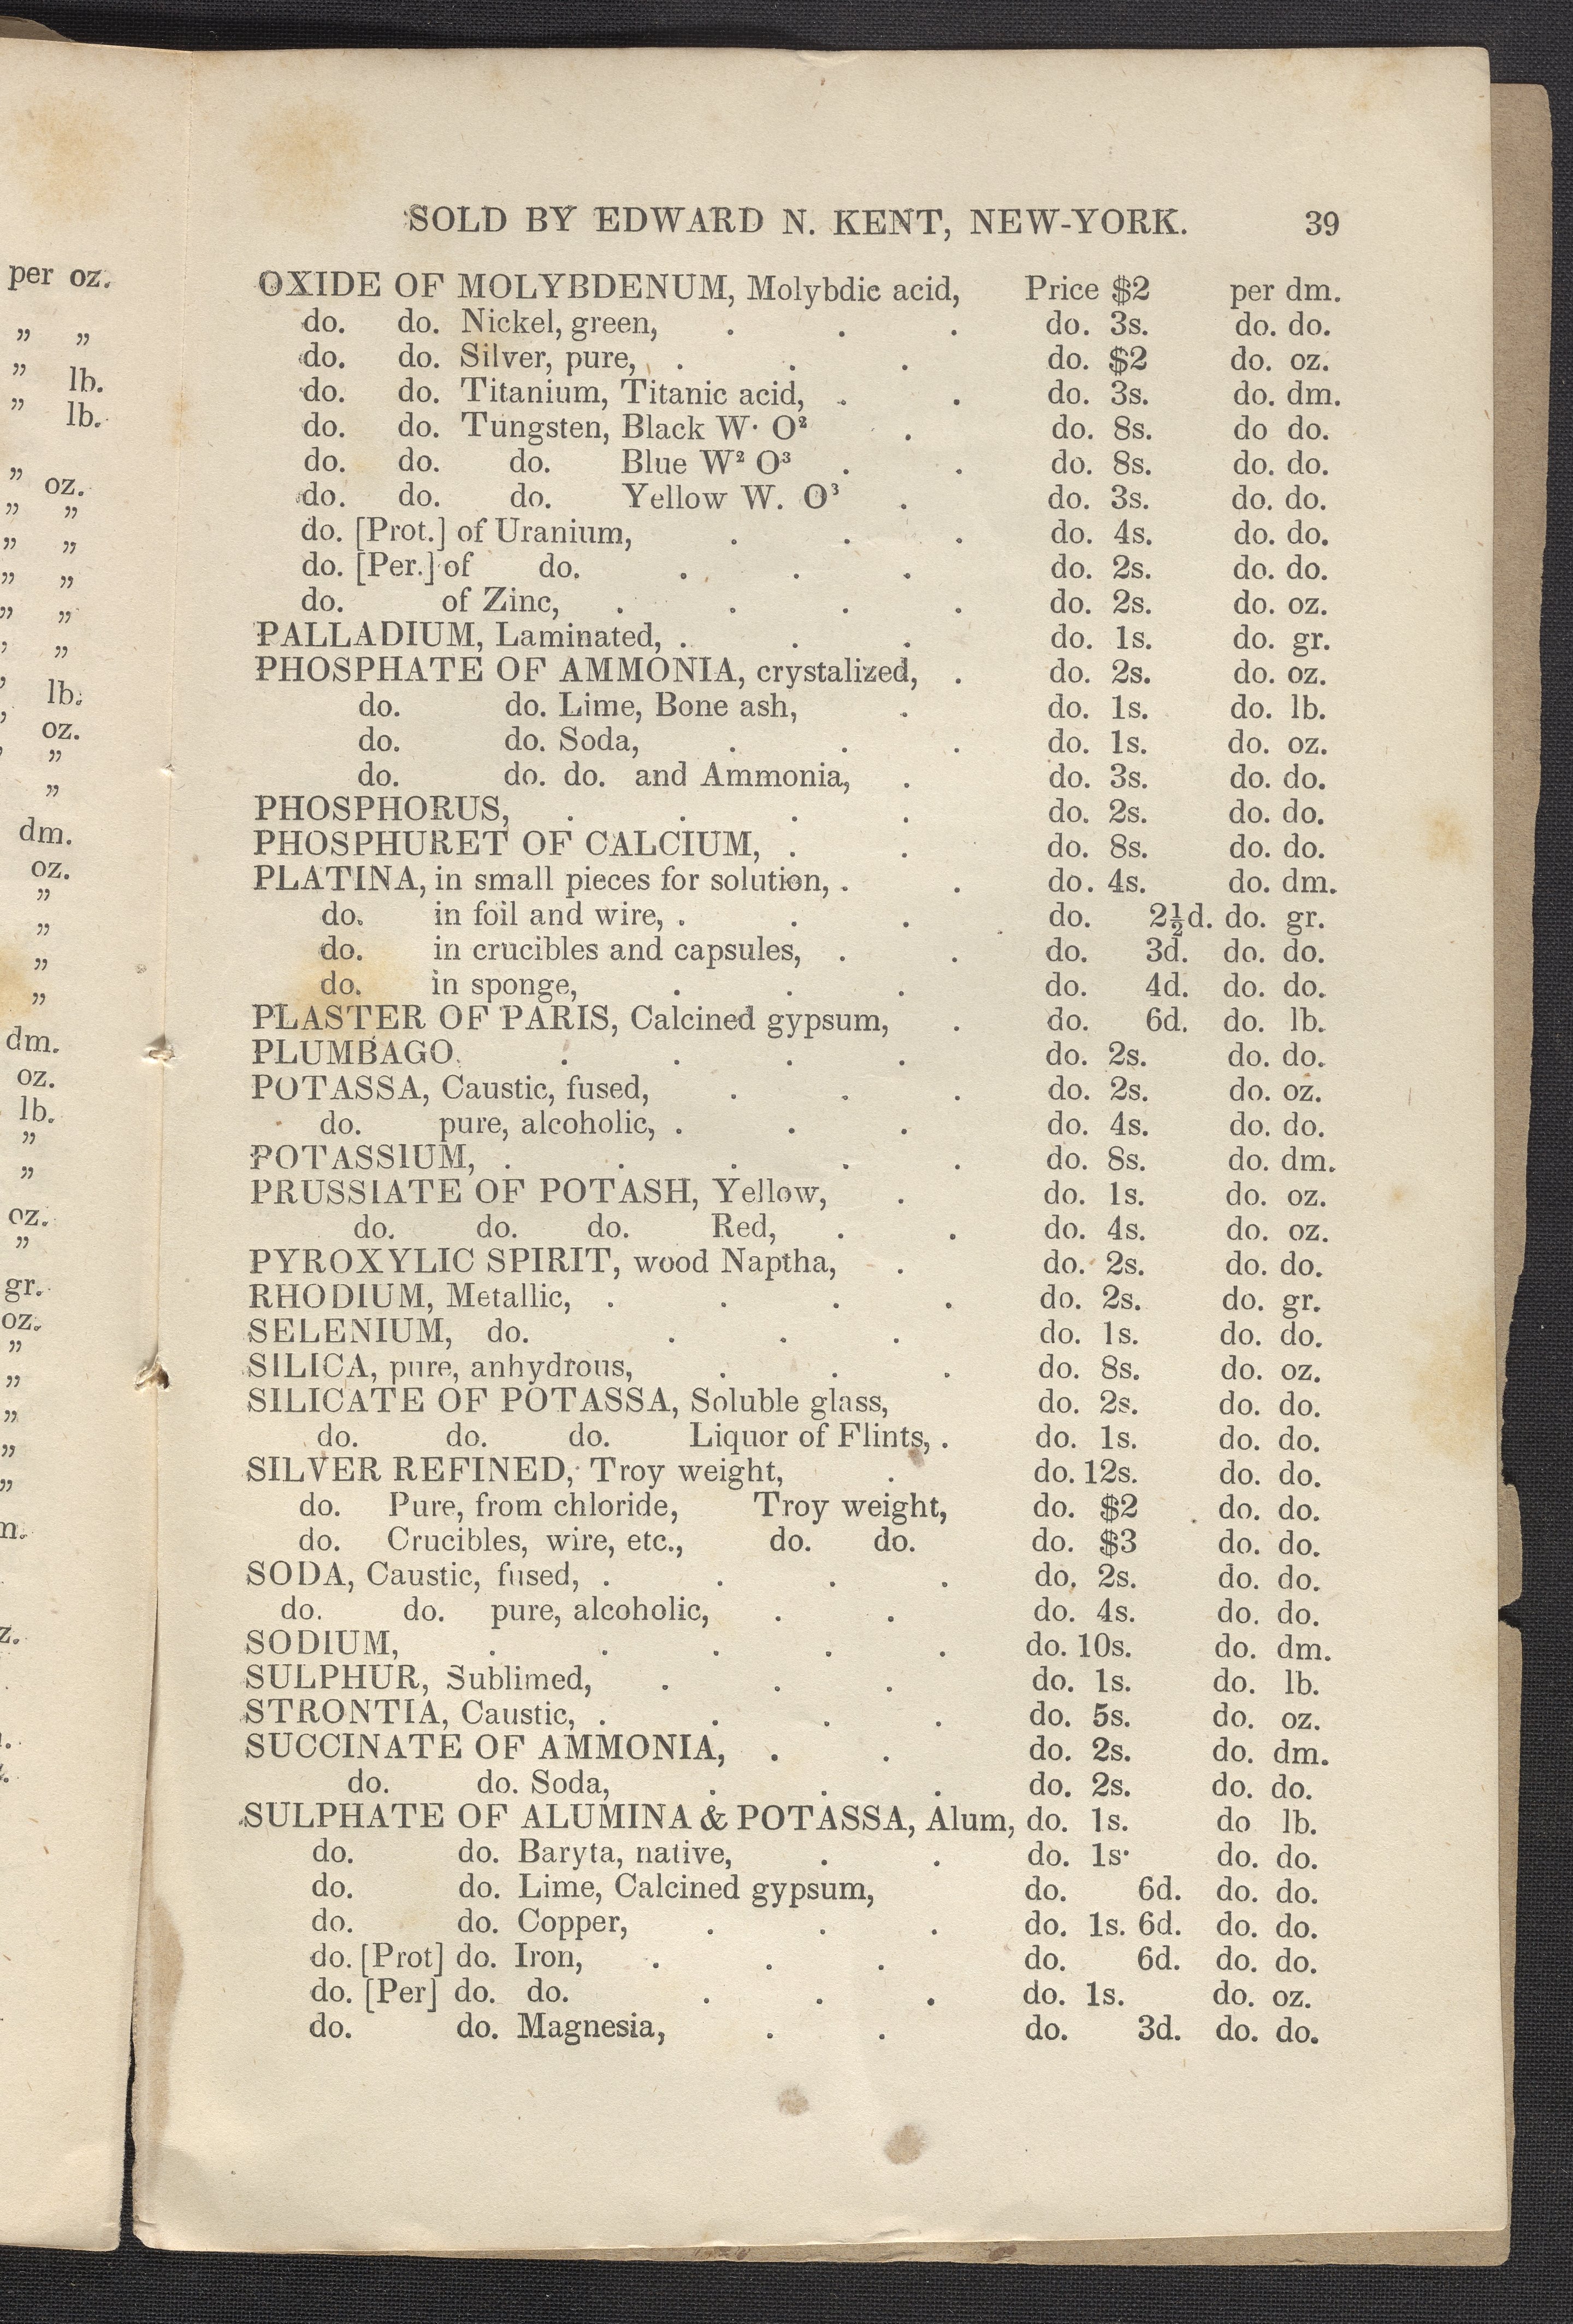 per oz.
” ”
” lb.
” lb.
” oz.
” ”
” ”
” ”
” ”
’ ”
’ lb.
’ oz.
’ ”
”
dm.
oz.
”
”
”
”
dm.
oz.
lb.
”
”
oz.
”
gr.
oz.
”
”
”
”
”
SOLD BY EDWARD N. KENT, NEW-YORK. 39
OXIDE OF MOLYBDENUM, Molybdic acid, Price $2 per dm.
do. do. Nickel, green, . . . do. 3s. do. do.
do. do. Silver, pure, . . . do. $2 do. oz.
do. do. Titanium, Titanic acid, . . do. 3s. do. dm.
do. do. Tungsten, Black W· O² . do. 8s. do do.
do. do. do. Blue W² O³ . . do. 8s. do. do.
do. do. do. Yellow W. O³ . do. 3s. do. do.
do. [Prot.] of Uranium, . . . do. 4s. do. do.
do. [Per.] of do. . . . do. 2s. do. do.
do. of Zinc, . . . . do. 2s. do. oz.
PALLADIUM, Laminated, . . . do. 1s. do. gr.
PHOSPHATE OF AMMONIA, crystalized, . do. 2s. do. oz.
do. do. Lime, Bone ash, . do. 1s. do. lb.
do. do. Soda, . . . do. 1s. do. oz.
do. do. do. and Ammonia, . do. 3s. do. do.
PHOSPHORUS, . . . . do. 2s. do. do.
PHOSPHURET OF CALCIUM, . . do. 8s. do. do.
PLATINA, in small pieces for solution, . . do. 4s. do. dm.
do. in foil and wire, . . . do. 2½d. do. gr.
do. in crucibles and capsules, . . do. 3d. do. do.
do. in sponge, . . . do. 4d. do. do.
PLASTER OF PARIS, Calcined gypsum, . do. 6d. do. lb.
PLUMBAGO. . . . . do. 2s. do. do.
POTASSA, Caustic, fused, . . . do. 2s. do. oz.
do. pure, alcoholic, . . . do. 4s. do. do.
POTASSIUM, . . . . . do. 8s. do. dm.
PRUSSIATE OF POTASH, Yellow, . do. 1s. do. oz.
do. do. do. Red, . . do. 4s. do. oz.
PYROXYLIC SPIRIT, wood Naptha, . do. 2s. do. do.
RHODIUM, Metallic, . . . . do. 2s. do. gr.
SELENIUM, do. . . . do. 1s. do. do.
SILICA, pure, anhydrous, . . . do. 8s. do. oz.
SILICATE OF POTASSA, Soluble glass, do. 2s. do. do.
do. do. do. Liquor of Flints, . do. 1s. do. do.
SILVER REFINED, Troy weight, . do. 12s. do. do.
do. Pure, from chloride, Troy weight, do. $2 do. do.
do. Crucibles, wire, etc., do. do. do. $3 do. do.
SODA, Caustic, fused, . . . . do. 2s. do. do.
do. do. pure, alcoholic, . . do. 4s. do. do.
SODIUM, . . . . . do. 10s. do. dm.
SULPHUR, Sublimed, . . . do. 1s. do. lb.
STRONTIA, Caustic, . . . . do. 5s. do. oz.
SUCCINATE OF AMMONIA, . . do. 2s. do. dm.
do. do. Soda, . . . do. 2s. do. do.
SULPHATE OF ALUMINA & POTASSA, Alum, do. 1s. do lb.
do. do. Baryta, native, . . do. 1s· do. do.
do. do. Lime, Calcined gypsum, do. 6d. do. do.
do. do. Copper, . . . do. 1s. 6d. do. do.
do. [Prot] do. Iron, . . . do. 6d. do. do.
do. [Per] do. do. . . . do. 1s. do. oz.
do. do. Magnesia, . . do. 3d. do. do.